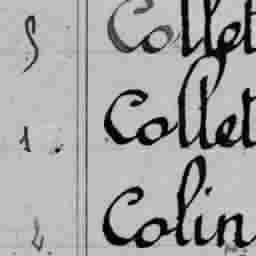 5 Collet
1. Collet
2. Colin